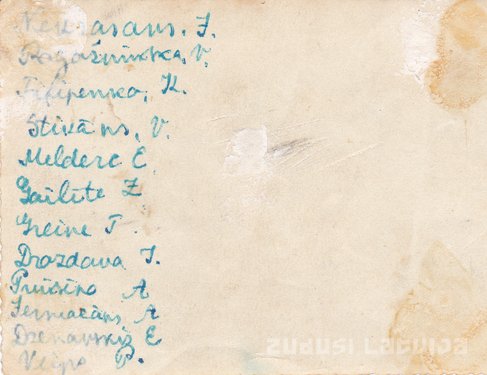 Nekrasans. J.
Pogožņinska, V.
Filipenko, K.
Stikāns, V.
Meldere E.
Gailīte Z
Greine T.
Drozdova I.
Pruisina A
Jermacāns, A
Dzenovskis E
Vilgra P.
zudusi latvija